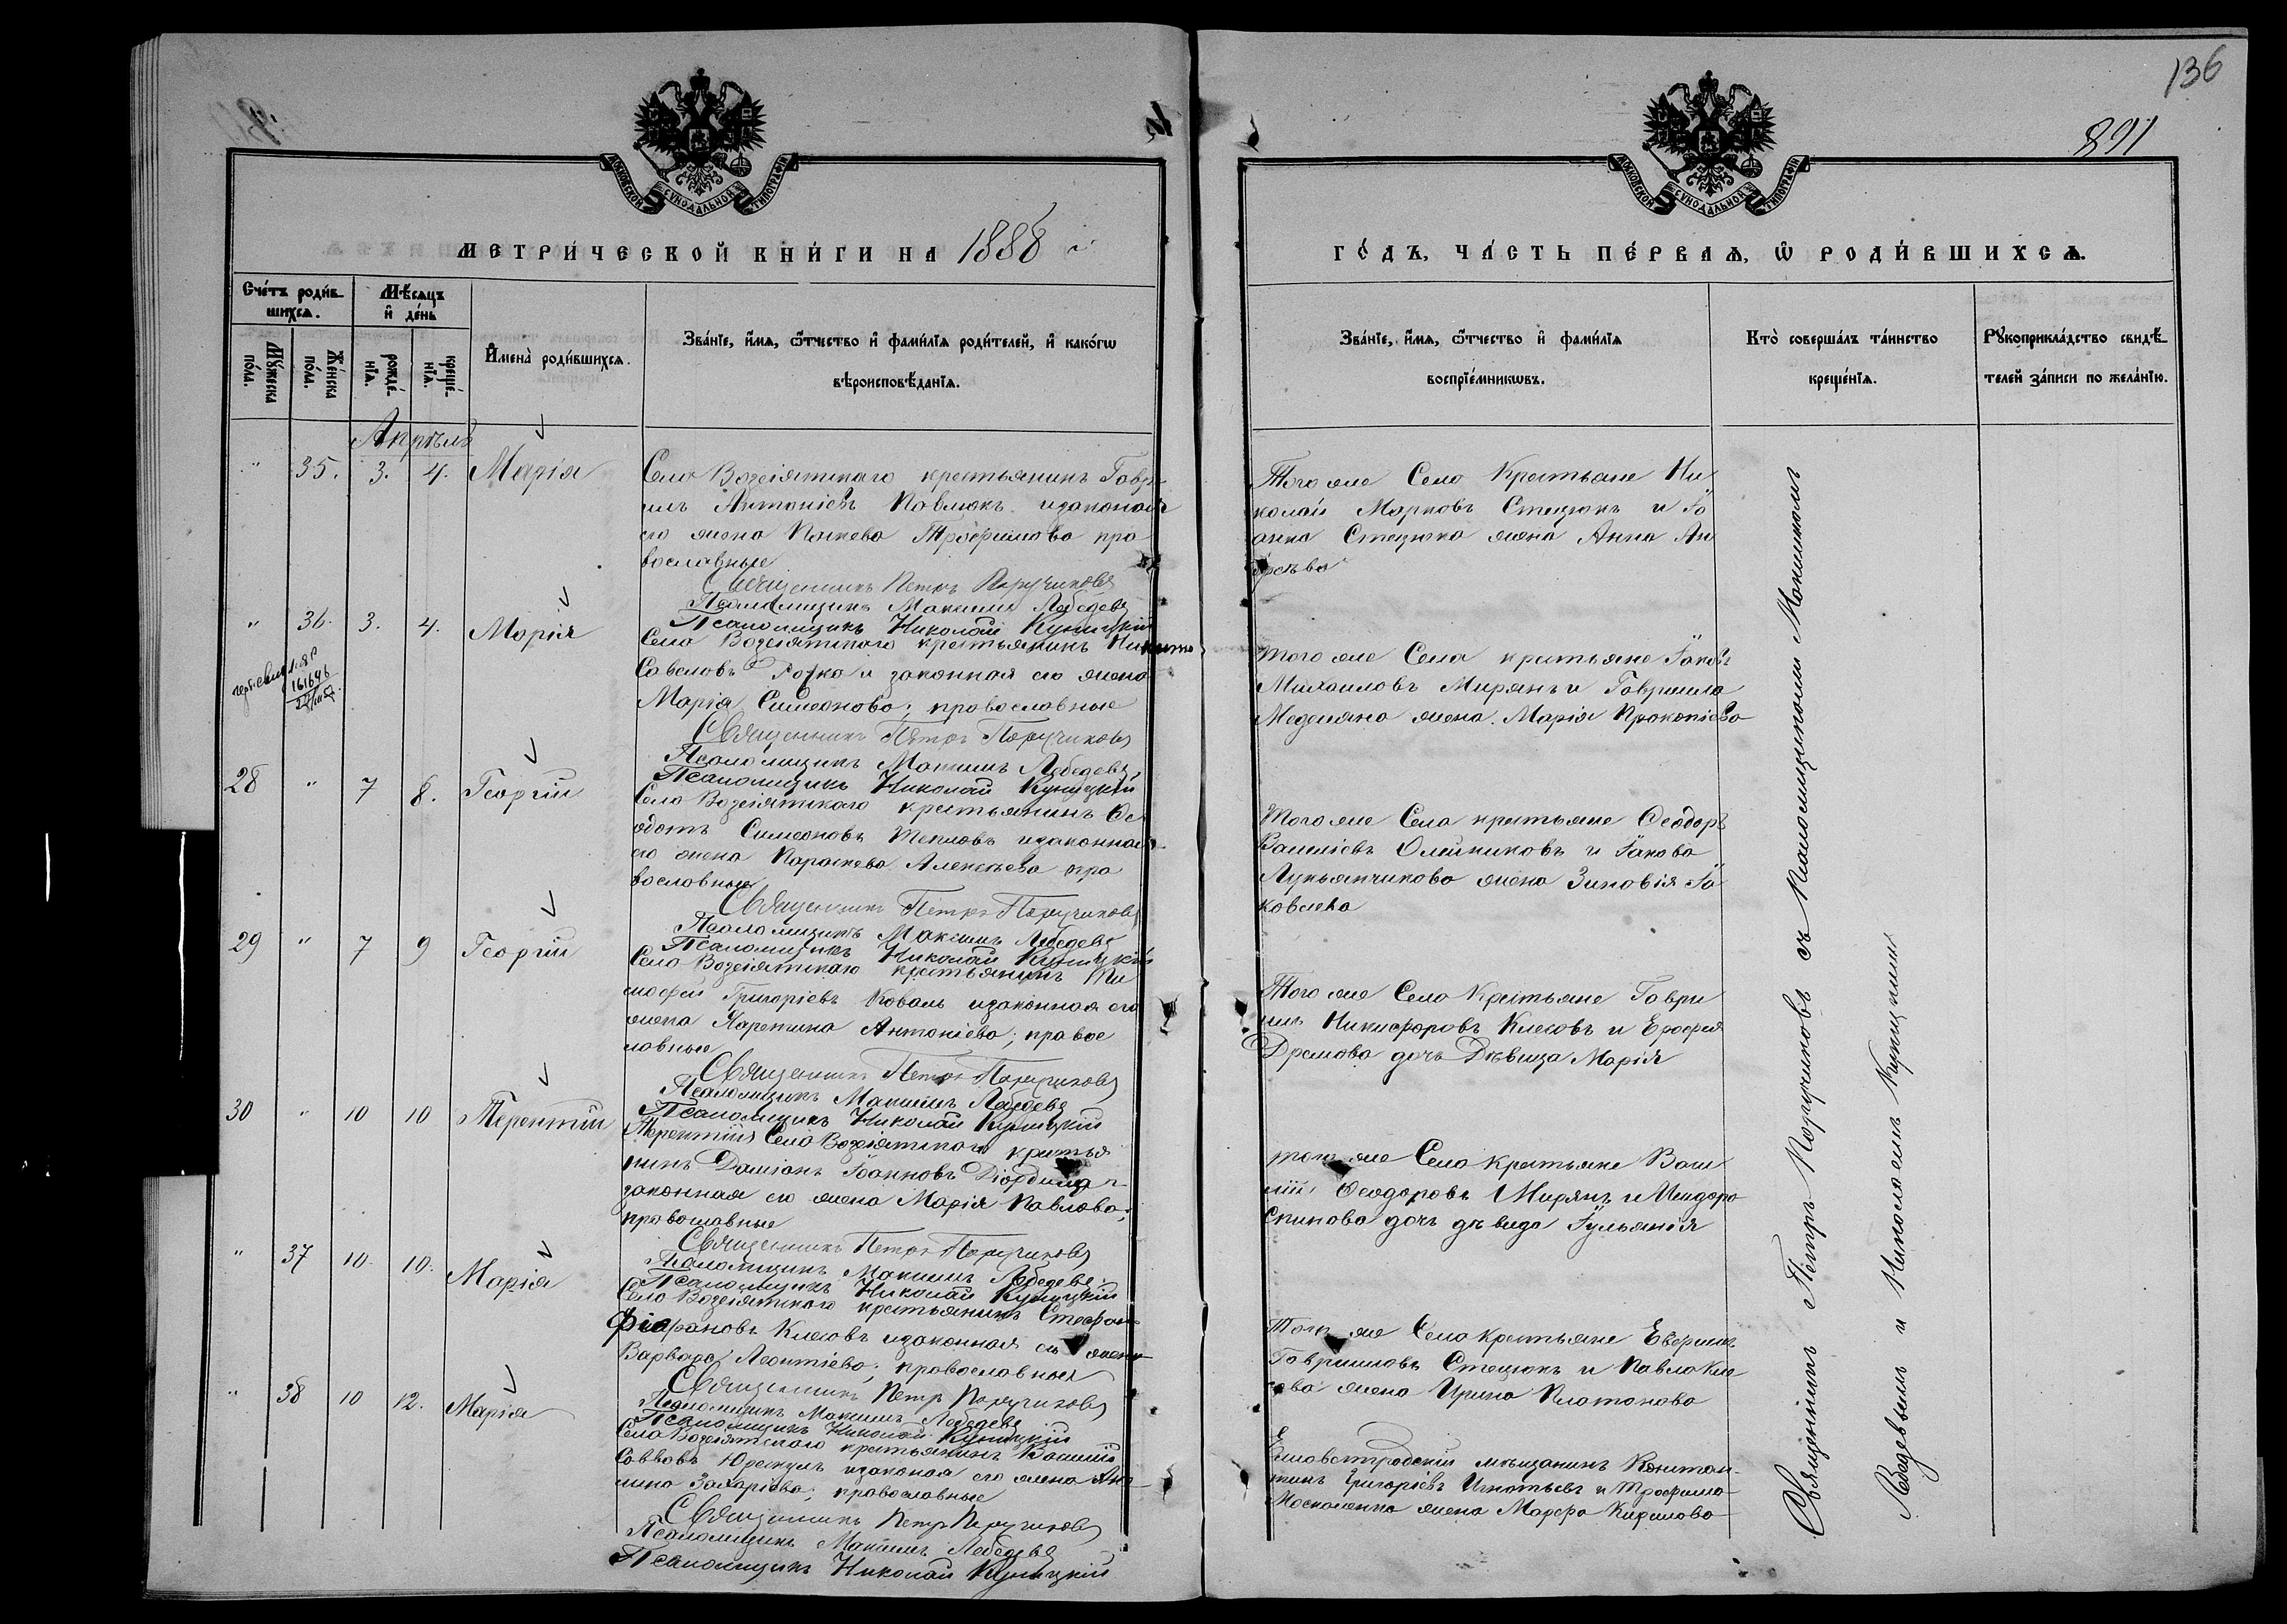 136
891
МОСКОВСКОЙ СУНОДАЛЬНОЙ ТИПОГРАФІИ
МОСКОВСКОЙ СУНОДАЛЬНОЙ ТИПОГРАФІИ
МЕТРИ́ЧЕСКОЙ КНИ́ГИ НА 1888
ГО́ДЪ, ЧА́СТЬ ПЕ́РВАѦ, Ѡ РОДИ́ВШИХСѦ.
Сче́тъ роди́в-
шихсѧ.
Мѣ́сѧцъ
и҆ де́нь
Му́жеска
по́ла.
Же́нска
по́ла.
рожде́-
нїѧ.
креще́-
нїѧ.
И҆мена̀ роди́вшихсѧ.
Зва́нїе, и҆́мѧ, ѻ҆́тчество и҆ фами́лїѧ роди́телей, и҆ како́гѡ
вѣроисповѣ́данїѧ.
Зва́нїе, и҆́мѧ, ѻ҆́тчество и҆ фами́лїѧ
воспрїе́мникѡвъ.
Кто̀ соверша́лъ та́инство
креще́нїѧ.
Рꙋкоприкла́дство свидѣ́-
телей за́писи по жела́нїю.
Апрѣль
" 35. 3. 4. Марія
Села Возсіятскаго крестьянинъ Гавр-
илъ Антоніевъ Павлюкъ и законая
его жена Параскева Трофимова пра
вославные
Священникъ Петръ Поручиковъ
Псаломщикъ Максимъ Лебедевъ
Псаломщикъ Николай Куницкій
Того же Села Крестьяне Ни
колай Марковъ Стецюкъ и Іо
анна Стецюка жена Анна Ан
дреева
" 36. 3. 4. Марія
161646
Села Возсіятскаго крестьянинъ Никита
Савеловъ и законная его жена
Марія Симеонова; православные
Священникъ Петръ Поручиковъ
Псаломщикъ Максимъ Лебедевъ
Псаломщикъ Николай Куницкій
того же Села крестьяне Іаковъ
Михаиловъ Мирянъ и Гавриила
жена Марія Прокопіева
28 " 7 8. Георгій
Села Возсіятскаго крестьянинъ Ѳе
одотъ Симеоновъ Тепловъ и законная
его жена Параскева Алексѣева пра
вославные
Священникъ Петръ Поручиковъ
Псаломщикъ Максимъ Лебедевъ
Псаломщикъ Николай Куницкій
Того же Села крестьяне Ѳеодоръ
Василіевъ Олейниковъ и Іакова
Лукьянчикова жена Зиновія Іа
ковлева
29 " 7 9 Георгій
Села Возсіятскаго крестьянинъ Ти
мофей Григоріевъ Коваль и законная его
жена Харетина Антоніева; правос
лавные
Священникъ Петръ Поручиковъ
Псаломщикъ Максимъ Лебедевъ
Псаломщикъ Николай Куницкій
Того же Села Крестьяне Гаври
илъ Никифоровъ Клесовъ и Ерофея
Дремова дочь Дѣвица Марія
30 " 10 10 Терентій
Терентій Села Возсіятскаго крестья
нинъ Даміанъ Іоанновъ Діордица и
законная его жена Марія Павлова;
православные
Священникъ Петръ Поручиковъ
Псаломщикъ Максимъ Лебедевъ
Псаломщикъ Николай Куницкій
того же Села крестьяне Васи
лій Ѳеодоровъ Мирянъ и Исидора
Спинова дочь дѣвица Іульянія
" 37 10. 10. Марія
Села Возсіятскаго крестьянинъ Стефан
Клесовъ и законная его жена
Варвара Леонтіева; православные
Священникъ Петръ Поручиковъ
Псаломщикъ Максимъ Лебедевъ
Псаломщикъ Николай Куницкій
Того же Села крестьяне Евфимъ
Гаврииловъ Стецюкъ и Павла Кле
сова жена Ирина Платонова
" 38 10 12. Марія
Села Возсіятскаго крестьянинъ Василій
Саввовъ и законая его жена Аки
лина Захаріева; православные
Священникъ Петръ Поручиковъ
Псаломщикъ Максимъ Лебедевъ
Псаломщикъ Николай Куницкій
Елисаветградскій мѣщанинъ Констан-
тинъ Григоріевъ Игнатьевъ и Трофима
Москаленка жена Марфа Кирилова
Священникъ Петръ Поручиковъ съ Псаломщиками Максимомъ
Лебедевымъ и Николаемъ Куницкимъ